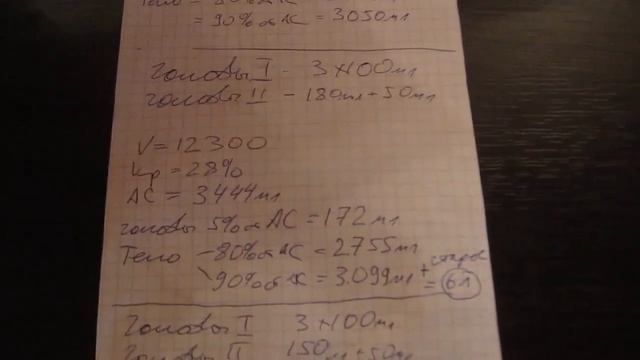 Тело - 80% от АС
= 90% от АС = 3050 мл
головы I - 3х100 мл
головы II - 180 мл + 50 мл
V = 12300
кр = 28%
АС = 3444 мл
головы 5% от АС = 172 мл
Тело - 80% от АС = 2755 мл
90% от АС = 3.099 мл + = 6л
Головы I 3х100 мл
Головы II 150 мл + 50 мл